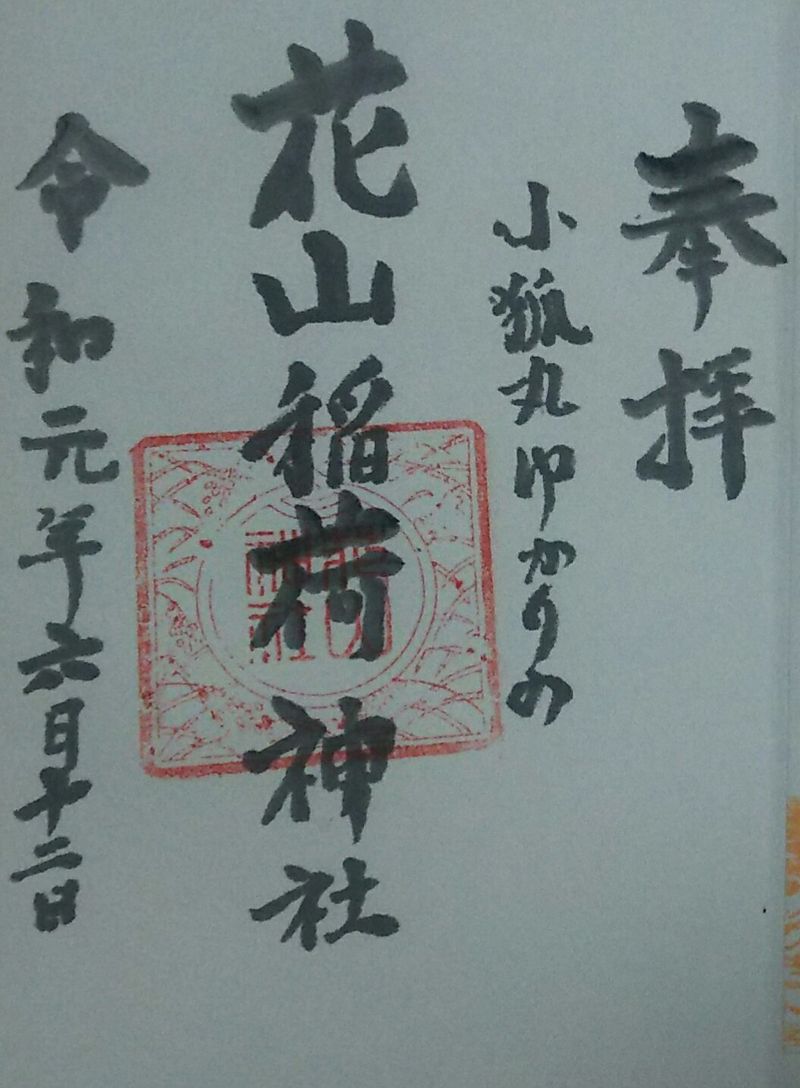 奉拝
小狐丸ゆかりの
花山稲荷神社
令和元年六月十二日